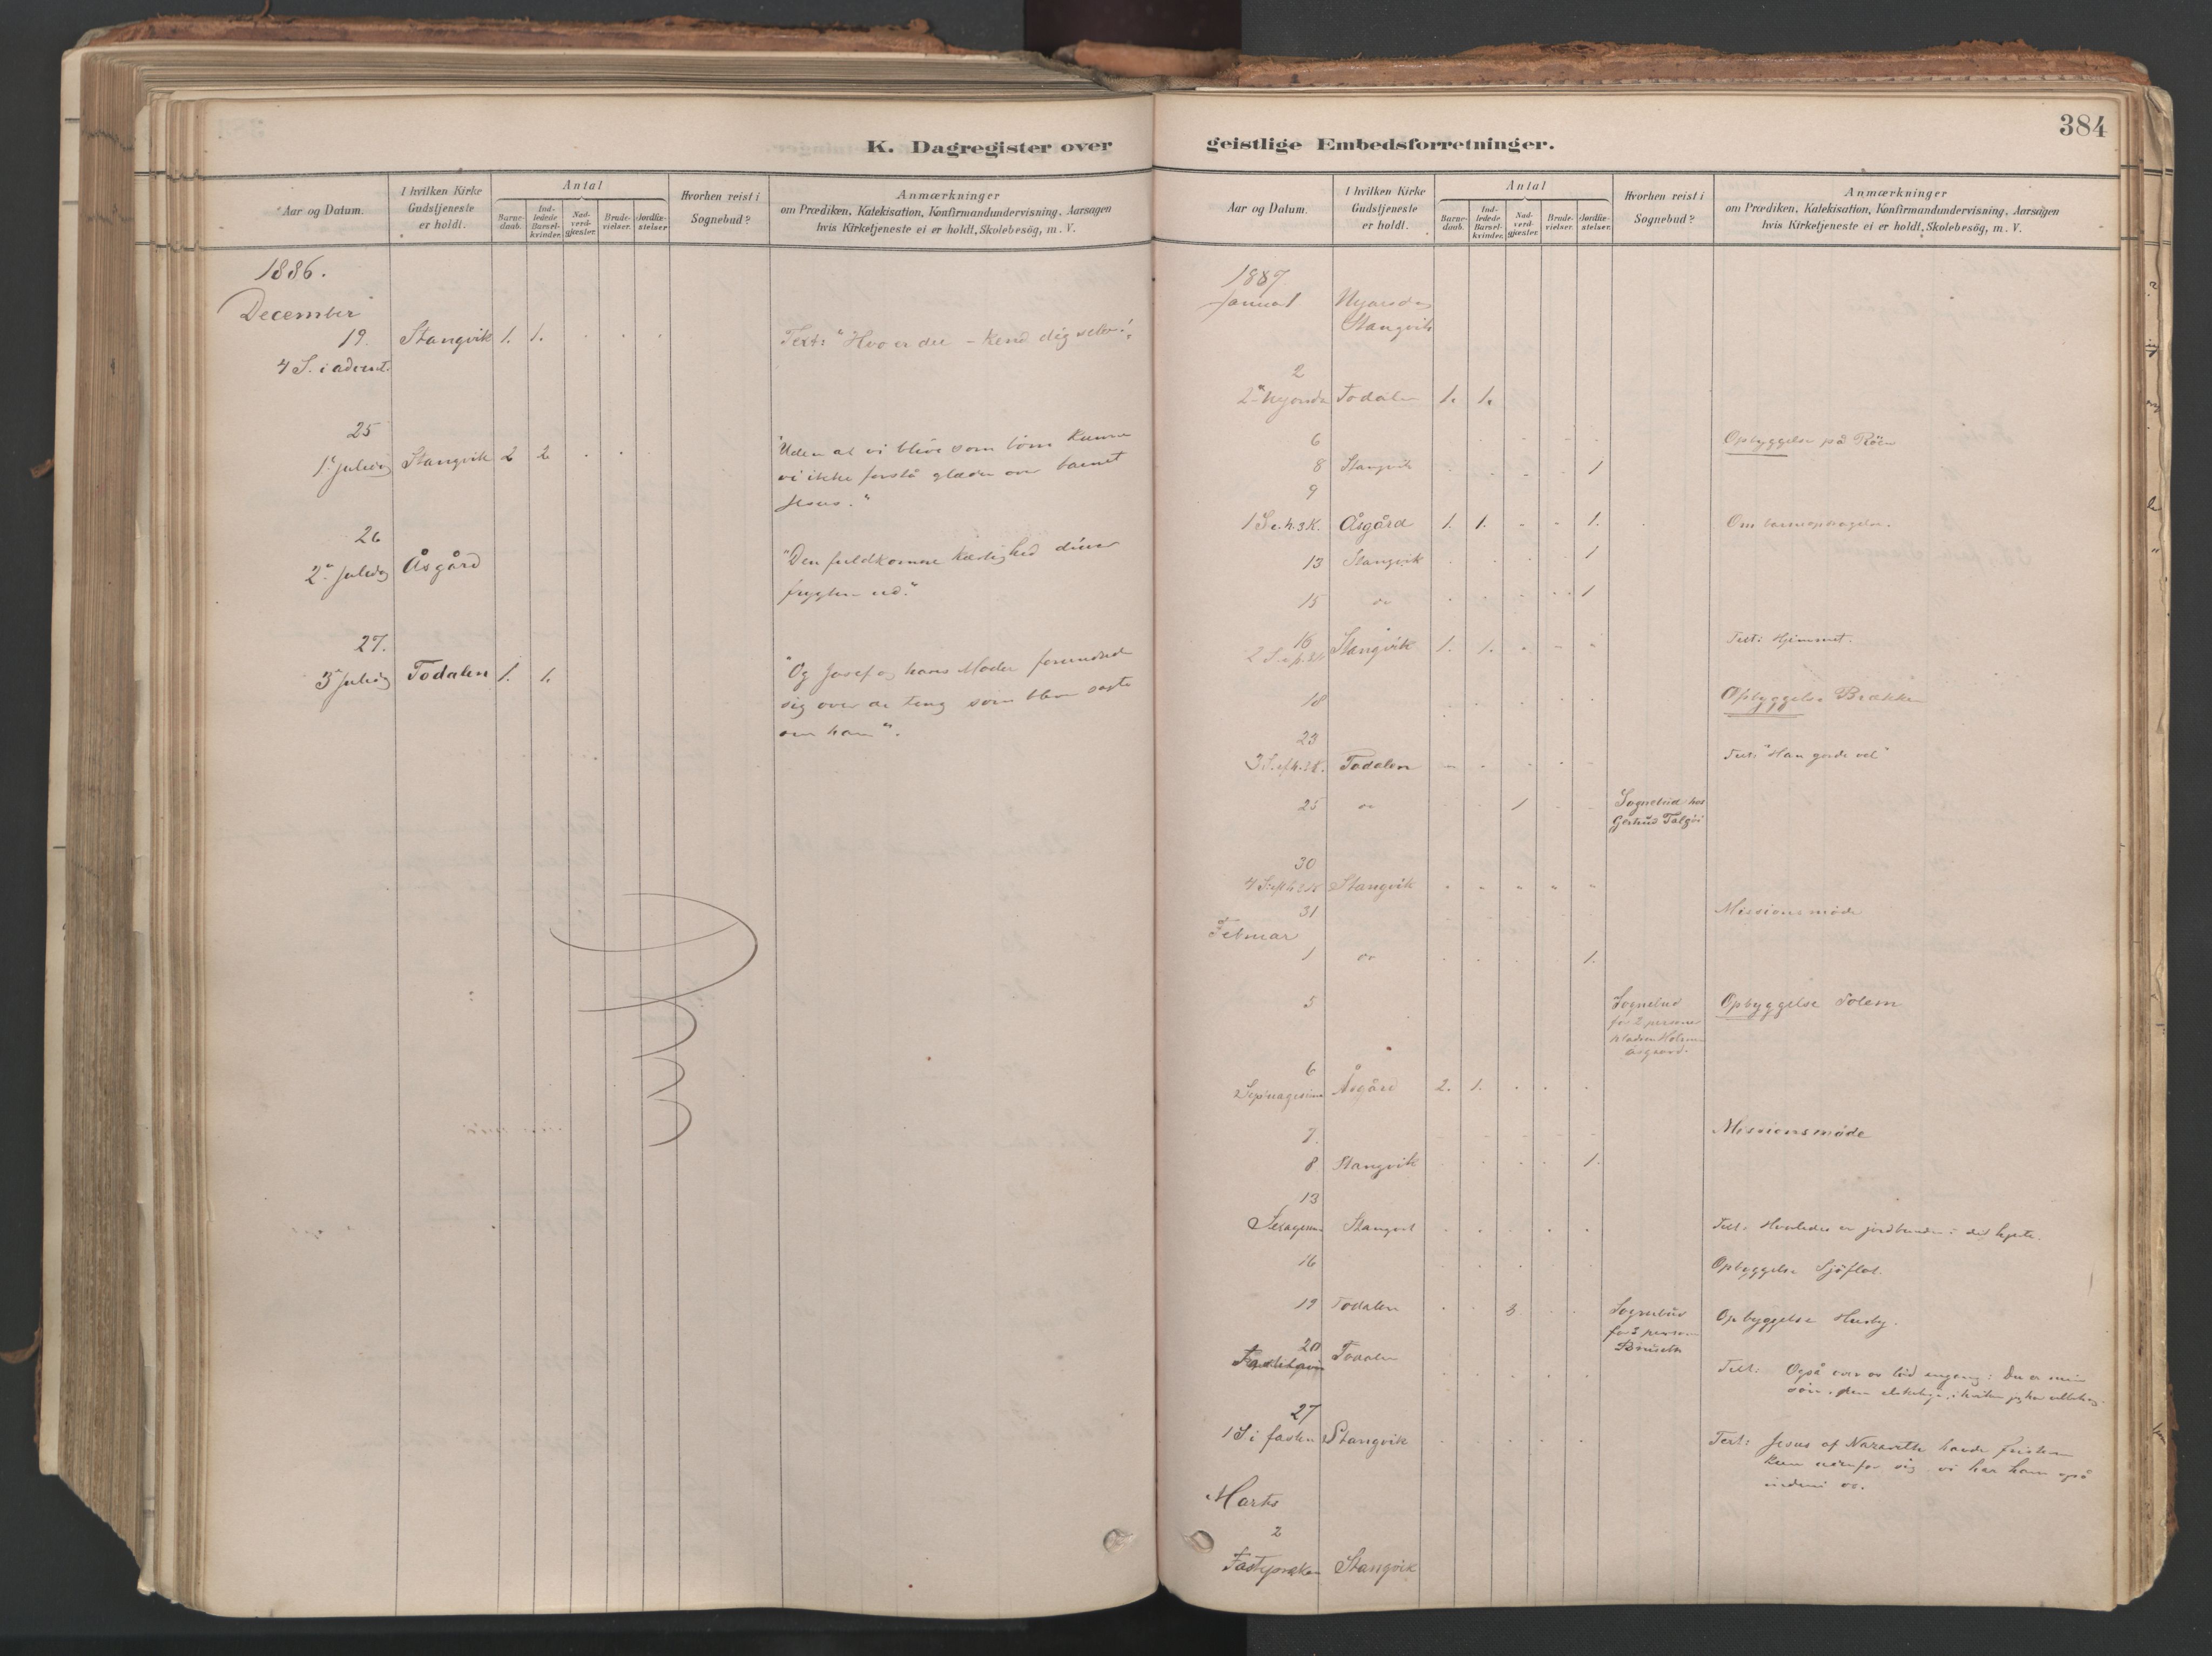 384
K. Dagregister over
Aar og Datum.
I hvilken Kirke Gudstjeneste er holdt.
Antal
Barne-daab.
Ind-ledede Barsel-kvinder.
Nad-verd-gjæster.
Brude-vielser.
Jordfæ-stelser
Hvorhen reist i Sognebud?
Anmærkninger
om Prædiken, Katekisation, Konfirmandundervisning, Aarsagen
hvis Kirketjeneste ei er holdt, Skolebesög, m. V.
1886.
December
19. Stangvik 1. 1. Text: "Hvo er du - Kend dig selv!"
4 S. i advent.
25
1ste juledag Stangvik 2 2 "Uden at vi blive som börn kunne
vi ikke forstå glæden over barnet
Jesus."
26
2den juledag Åsgård "Den fuldkomne kærlighed driver
frygten ud."
27.
3die juledag Todalen 1. 1. "Og Josef og hans Moder forundrede
sig over de ting som blev sagte
om ham".
geistlige Embedsforretninger.
Aar og Datum.
I hvilken Kirke Gudstjeneste er holdt.
Antal
Barne-daab.
Ind-ledede Barsel-kvinder.
Nad-verd-gjæster.
Brude-vielser.
Jordfæ-stelser.
Hvorhen reist i Sognebud?
Anmærkninger
om Prædiken, Katekisation, Konfirmandundervisning, Aarsagen
hvis Kirketjeneste ei er holdt, Skolebesög, m. V.
1887
Januar 1 Nyårsdag
Stangvik
2
Todalen 1. 1.
6 Opbyggelse på Röen
8 Stangvik 1
9
1 S. e. h. 3 K. Åsgård 1. 1. 1.
13 Stangvik 1
15 1
16 Stangvik 1. 1. Text: Hjemmet.
18 Opbyggelse Brække
23
3 S. ef h. 3 K. Todalen Text: "Han gjorde vel"
25 1 Sognebud hos
Gertrud Talgöi
30
4 S. ef h 3 K Stangvik
31 Missionsmöde
Februar
1 1.
5 Sognebud Opbyggelse Solem
for 2 personer
Åsgaard.
6
Septuagesima Åsgård 2. 1.
7. Missionsmöde
8 Stangvik 1.
13
Sexagesima Stangvik Text: Hvorledes er jordbunden i dit hjerte.
16 Opbyggelse Sjöflot.
19 Todalen 3 Sognebud Opbyggelse Husby.
for 3 personer
20 Todalen
Fastelavn
Text: Også over os löd engang: Du er min
sön, den elskelige, i hvilken jeg har velbehag.
27
1 S i fasten Stangvik Text: Jesus af Nazareth havde fristeren
kun udenfor sig vi har ham også
indeni os.
Marts
2
Fasteprædiken Stangvik